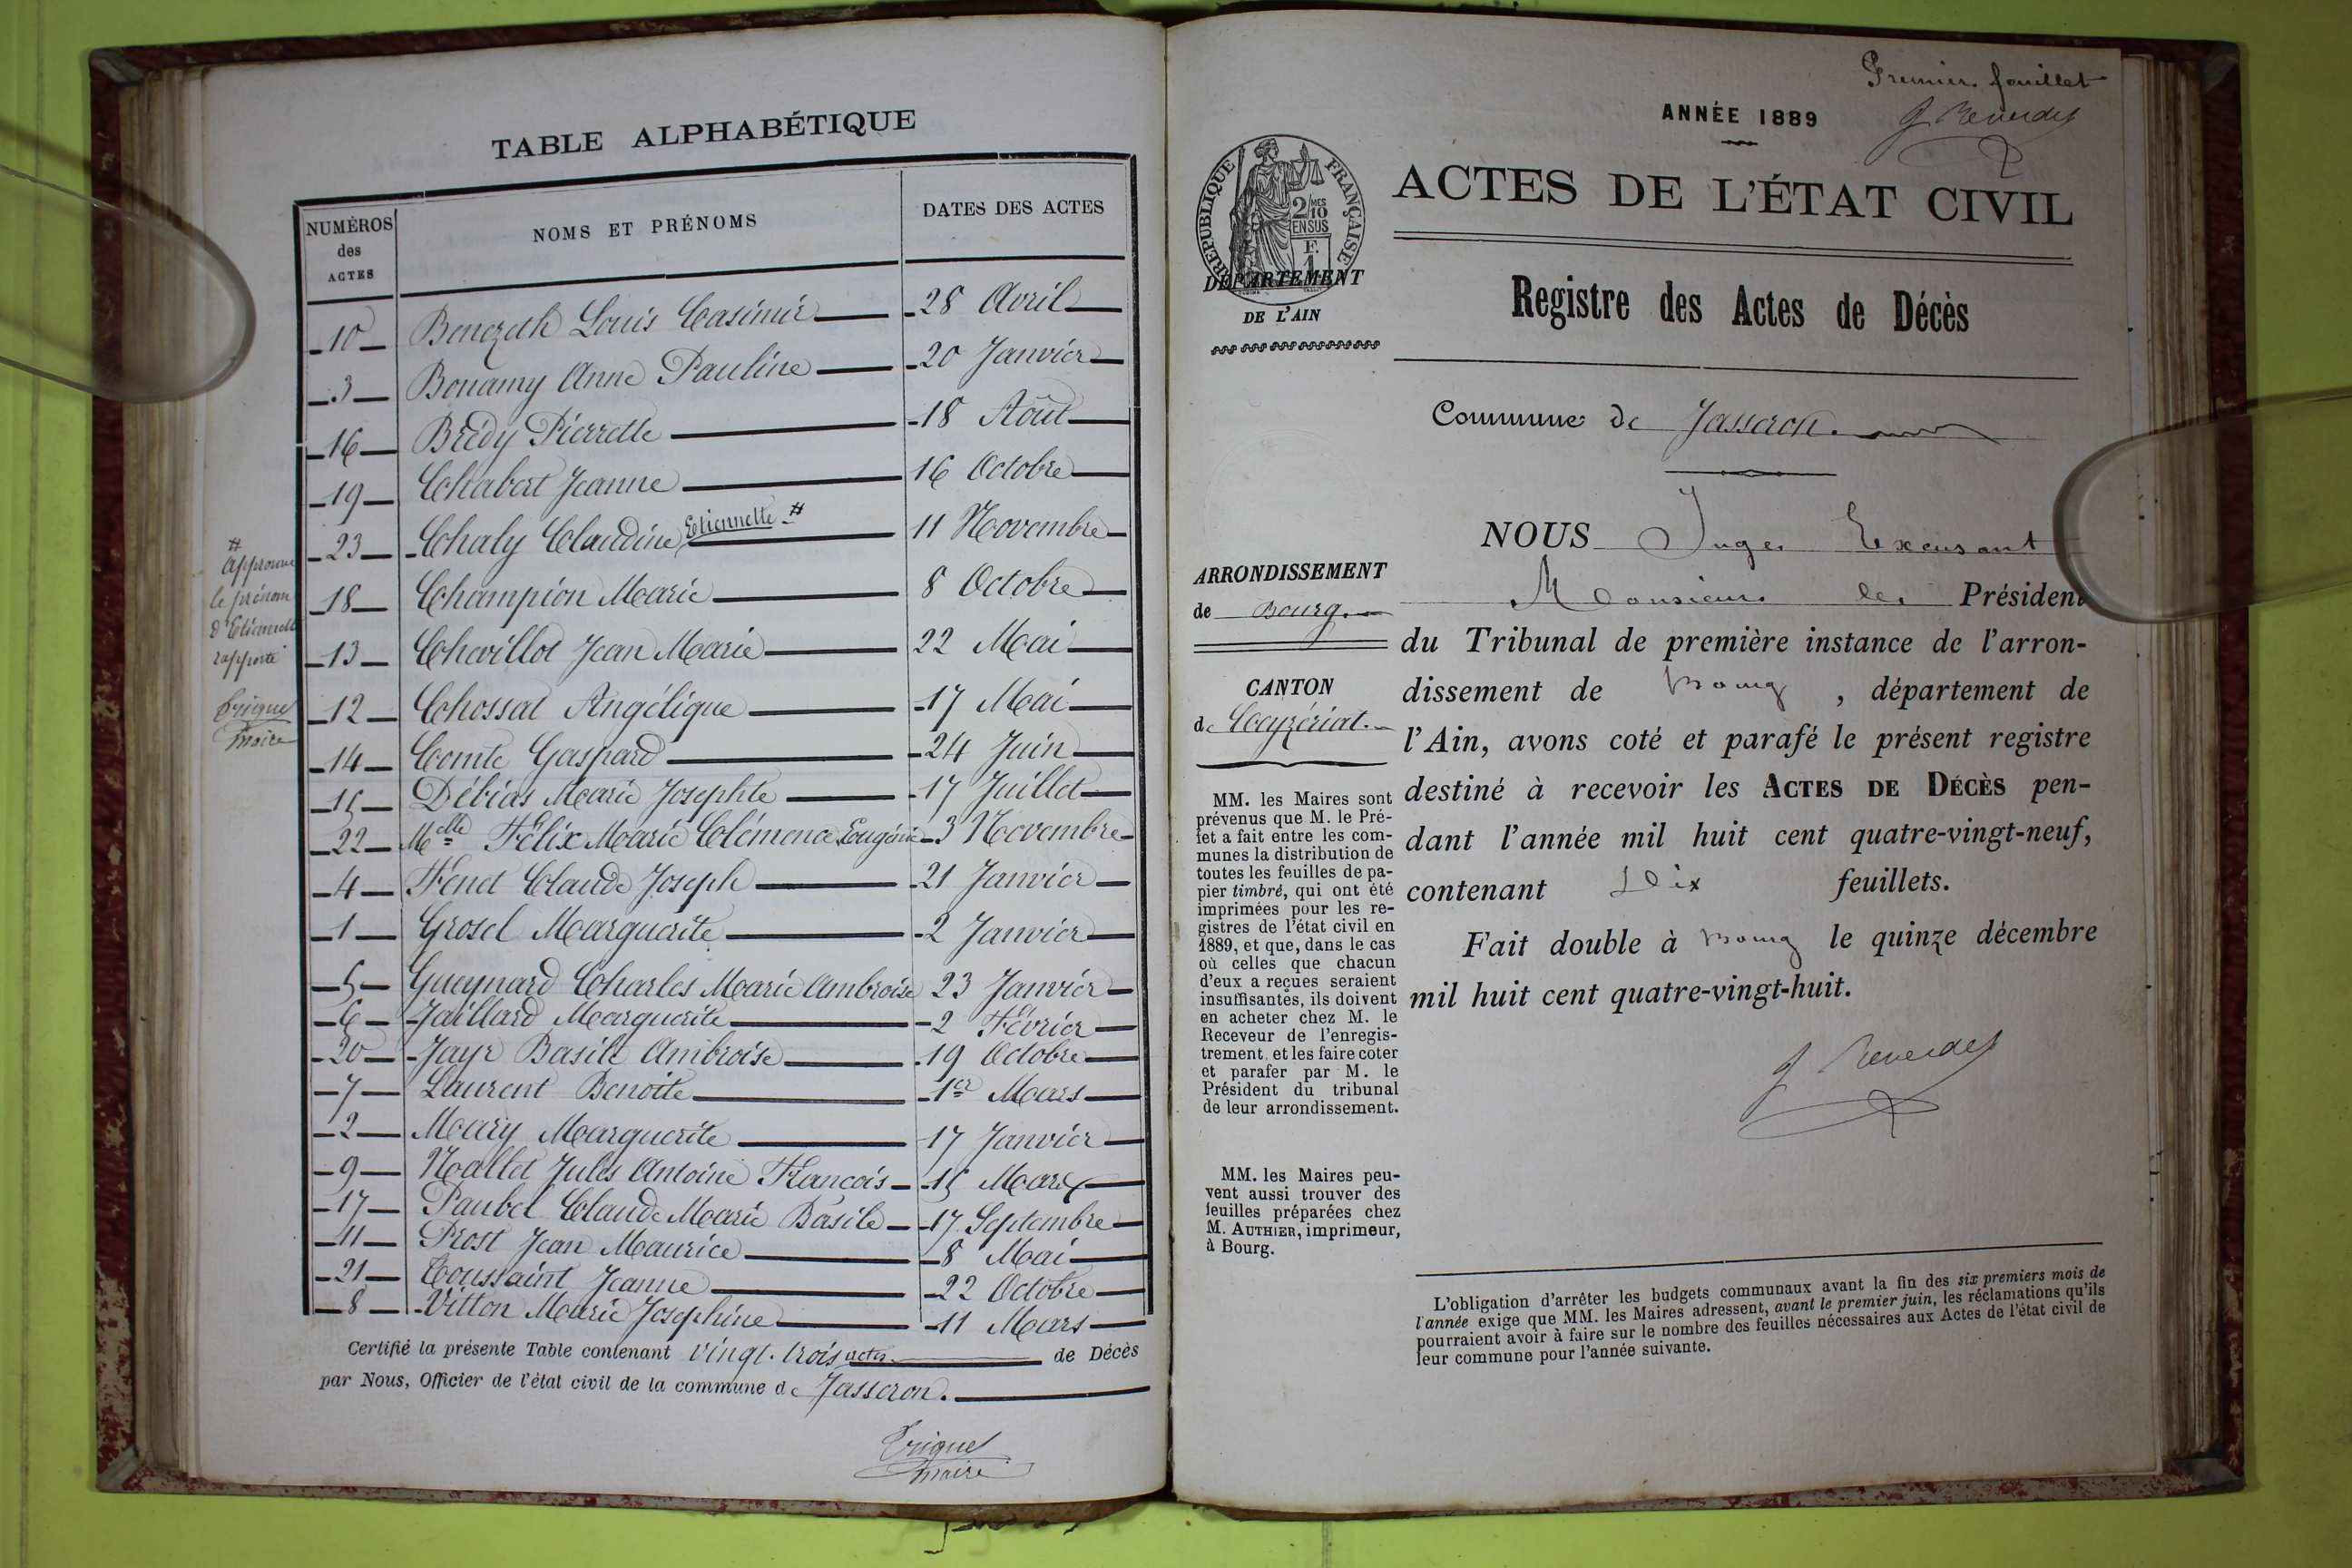 TABLE ALPHABÉTIQUE
NUMÉROS des ACTES NOMS ET PRÉNOMS DATES DES ACTES
10 Benezeth Louis Casimir 28 Avril
3 Bonamy Anne Pauline 20 Janvier
16 Brédy Pierrette 18 Août
19 Chabert Jeanne 16 Octobre
23 Chaly Claudine Etiennette # 11 Novembre
18 Champion Marie 8 Octobre
13 Chevillot Jean Marie 22 Mai
12 Chossat Angélique 17 Mai
14 Comte Gaspard 24 Juin
15 Débias Marie Josephte 17 Juillet
22 Melle Félix Marie Clémence Eugénie 3 Novembre
4 Fenet Claude Joseph 21 Janvier
1 Grosel Marguerite 2 Janvier
5 Gueynard Charles Marie Ambroise 23 Janvier
6 Jaillard Marguerite 2 Février
20 Jayr Basile Ambroise 19 Octobre
7 Laurent Benoite 1er Mars
2 Mary Marguerite 17 Janvier
9 Nallet Jules Antoine François 15 Mars
17 Paubel Claude Marie Basile 17 Septembre
11 Prost Jean Maurice 8 Mai
21 Toussaint Jeanne 22 Octobre
8 Vitton Marie Josephine 11 Mars
Certifié la présente Table contenant vingt-trois actes de Décès
par Nous, Officier de l'état civil de la commune de Jasseron.
maire
#
Approuvé
le prénom
d'Etiennette
rapporté
maire
Premier feuillet
ANNÉE 1889
ACTES DE L'ÉTAT CIVIL
RÉPUBLIQUE FRANÇAISE
2/10 MES
EN SUS
F.
1
DÉPARTEMENT
DE L'AIN
Registre des Actes de Décès
Commune de Jasseron.
ARRONDISSEMENT
de Bourg.
CANTON
de Ceyzériat.
MM. les Maires sont
prévenus que M. le Pré-
fet a fait entre les com-
munes la distribution de
toutes les feuilles de pa-
pier timbré, qui ont été
imprimées pour les re-
gistres de l'état civil en
1889, et que, dans le cas
où celles que chacun
d'eux a reçues seraient
insuffisantes, ils doivent
en acheter chez M. le
Receveur de l'enregis-
trement, et les faire coter
et parafer par M. le
Président du tribunal
de leur arrondissement.
MM. les Maires peu-
vent aussi trouver des
feuilles préparées chez
M. AUTHIER, imprimeur,
à Bourg.
NOUS Juge Excusant
Monsieur le Président
du Tribunal de première instance de l'arron-
dissement de Bourg , département de
l'Ain, avons coté et parafé le présent registre
destiné à recevoir les ACTES DE DÉCÈS pen-
dant l'année mil huit cent quatre-vingt-neuf,
contenant Dix feuillets.
Fait double à Bourg le quinze décembre
mil huit cent quatre-vingt-huit.
L'obligation d'arrêter les budgets communaux avant la fin des six premiers mois de
l'année exige que MM. les Maires adressent, avant le premier juin, les réclamations qu'ils
pourraient avoir à faire sur le nombre des feuilles nécessaires aux Actes de l'état civil de
leur commune pour l'année suivante.